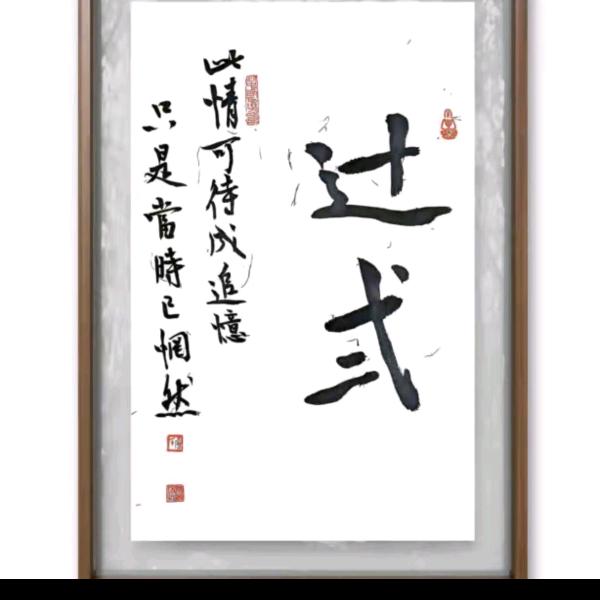 辻弍
此情可待成追憶
只是當時已惘然